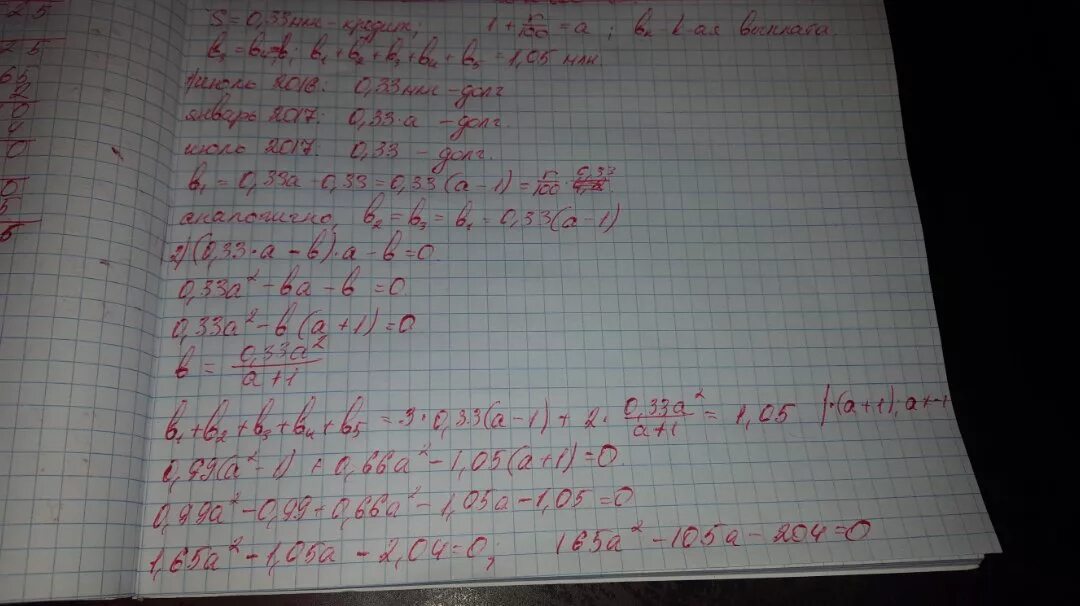 25
25
65
2
0
4
0
0
5
5
S = 0,33 млн - кредит; 1 + r/100 = a; bₖ - k-ая выплата
b₁ + b₂ + b₃ + b₄ + b₅ = 1,05 млн
1) июль 2016: 0,33 млн - долг
январь 2017: 0,33·a - долг.
июль 2017: 0,33 - долг.
b₁ = 0,33a - 0,33 = 0,33(a-1) = r/100 · 0,33
аналогично, b₂ = b₃ = b₁ = 0,33(a-1)
2) (0,33·a - b)·a - b = 0
0,33a² - ba - b = 0
0,33a² - b(a+1) = 0
b = 0,33a²/(a+1)
b₁ + b₂ + b₃ + b₄ + b₅ = 3·0,33(a-1) + 2· 0,33a²/(a+1) = 1,05 |·(a+1); a≠-1
0,99(a²-1) + 0,66a² - 1,05(a+1) = 0
0,99a² - 0,99 + 0,66a² - 1,05a - 1,05 = 0
1,65a² - 1,05a - 2,04 = 0; 165a² - 105a - 204 = 0